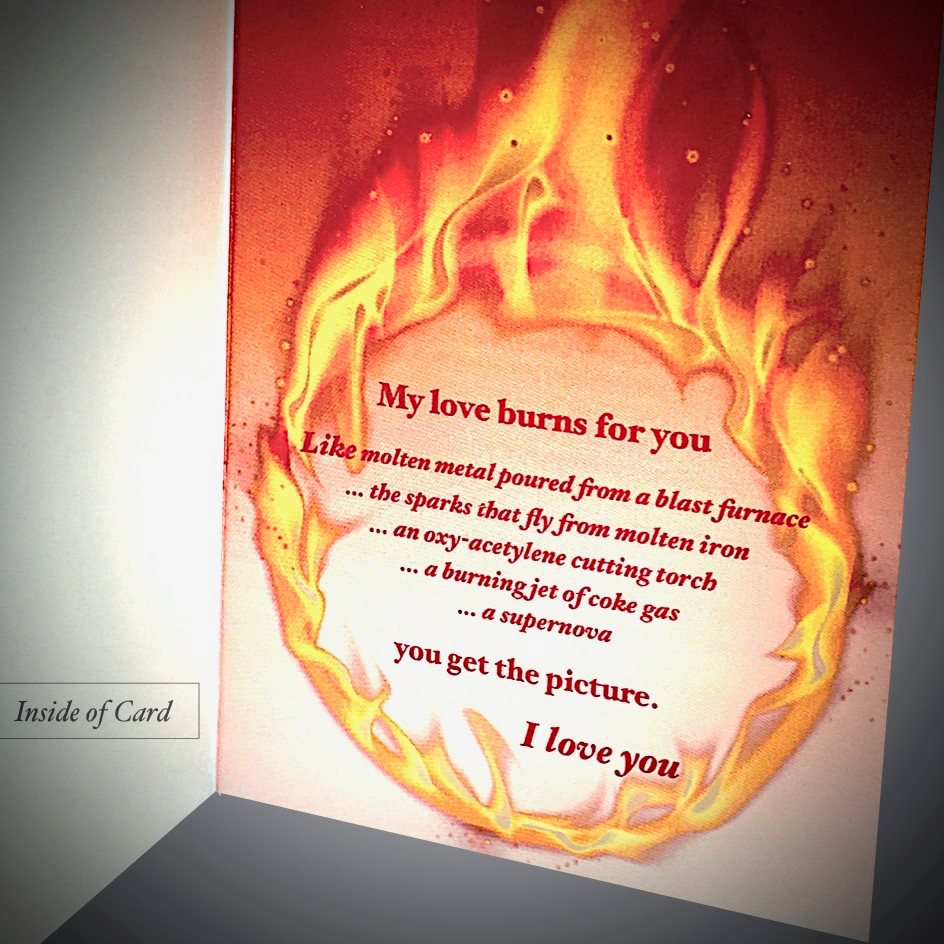 My love burns for you
Like molten metal poured from a blast furnace
... the sparks that fly from molten iron
... an oxy-acetylene cutting torch
... a burning jet of coke gas
... a supernova
you get the picture.
I love you
Inside of Card